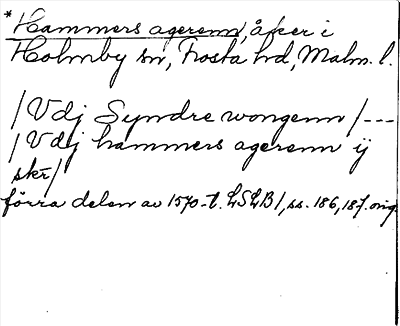 *Hammers agerenn, åker i
Holmby sn, Frosta hd, Malm. l.
/Vdj Syndre wongenn/---
/Vdj hammers agerenn ij
skr/
förra delen av 1570-t. LSLB1, ss. 186, 187. orig.